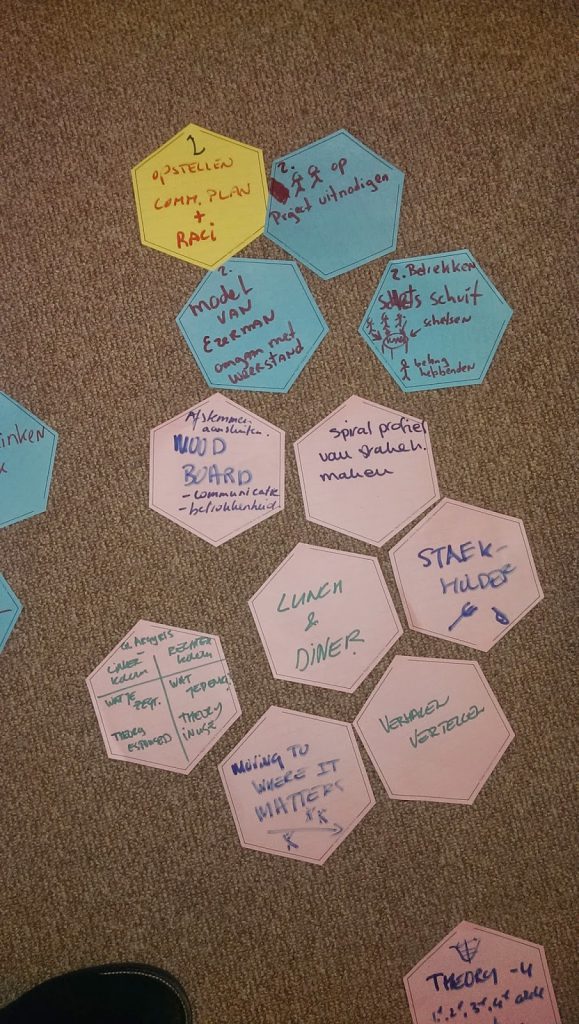 2
OPSTELLEN
COMM. PLAN
+
RACI
2.
op
Project uitnodigen
2.
model
VAN
EZERMAN
omgaan met
WEERSTAND
2. Betrekken
schuif
schetsen
belang
hebbenden
inken
Afstemmen
aansluiten.
MOOD
BOARD
- communicatie
- betrokkenheid.
spiral profiel
van
maken
STAEK-
HOLDER
LUNCH
&
DINER
LINKER
kolom
RECHTER
kolom
WAT JE
ZEGT.
WAT
JE DENKT.
THEORY
ESPOUSED
THEORY
IN USE
VERHALEN
VERTELLEN
MOVING TO
WHERE IT
MATTERS
THEORY - 4
1e, 2e, 3e, 4e orde